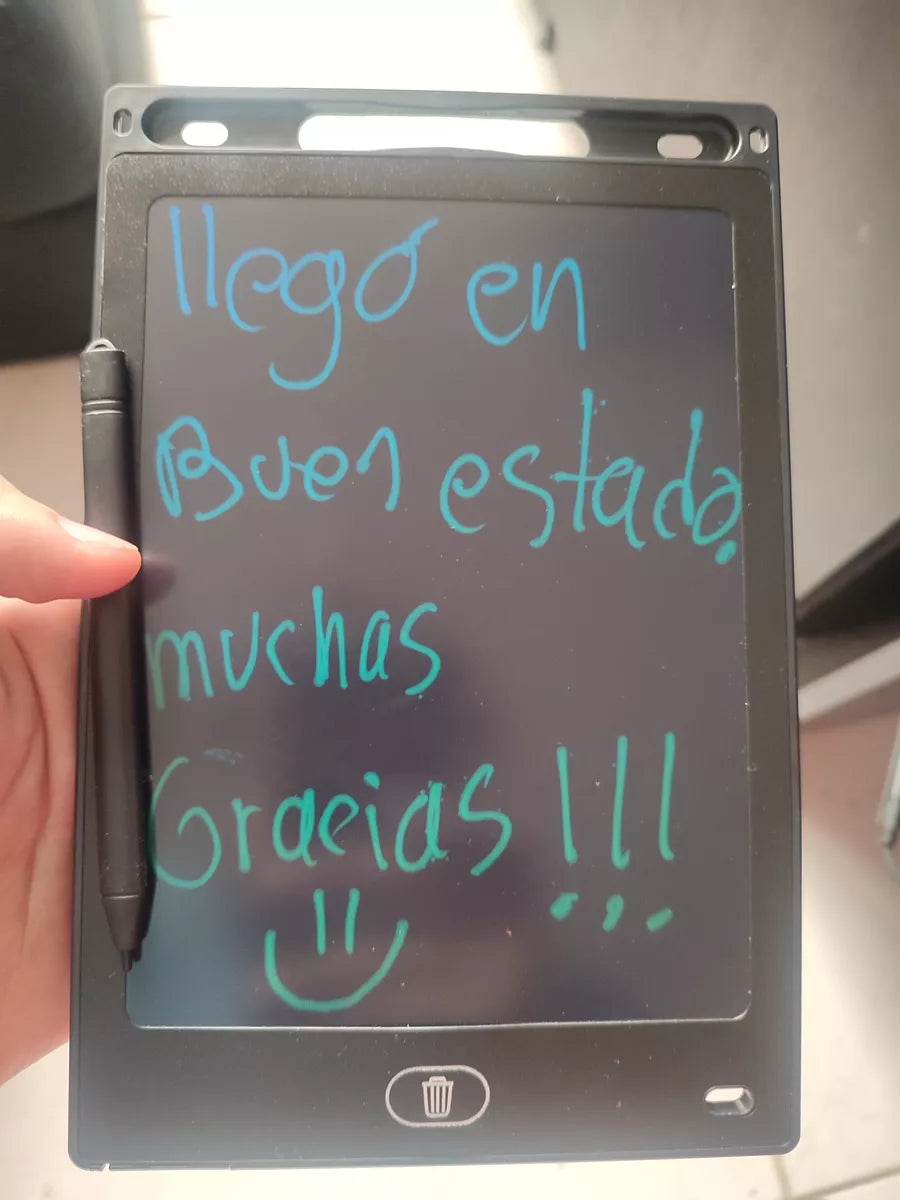 llegó en
Buen estado.
muchas
Gracias !!!